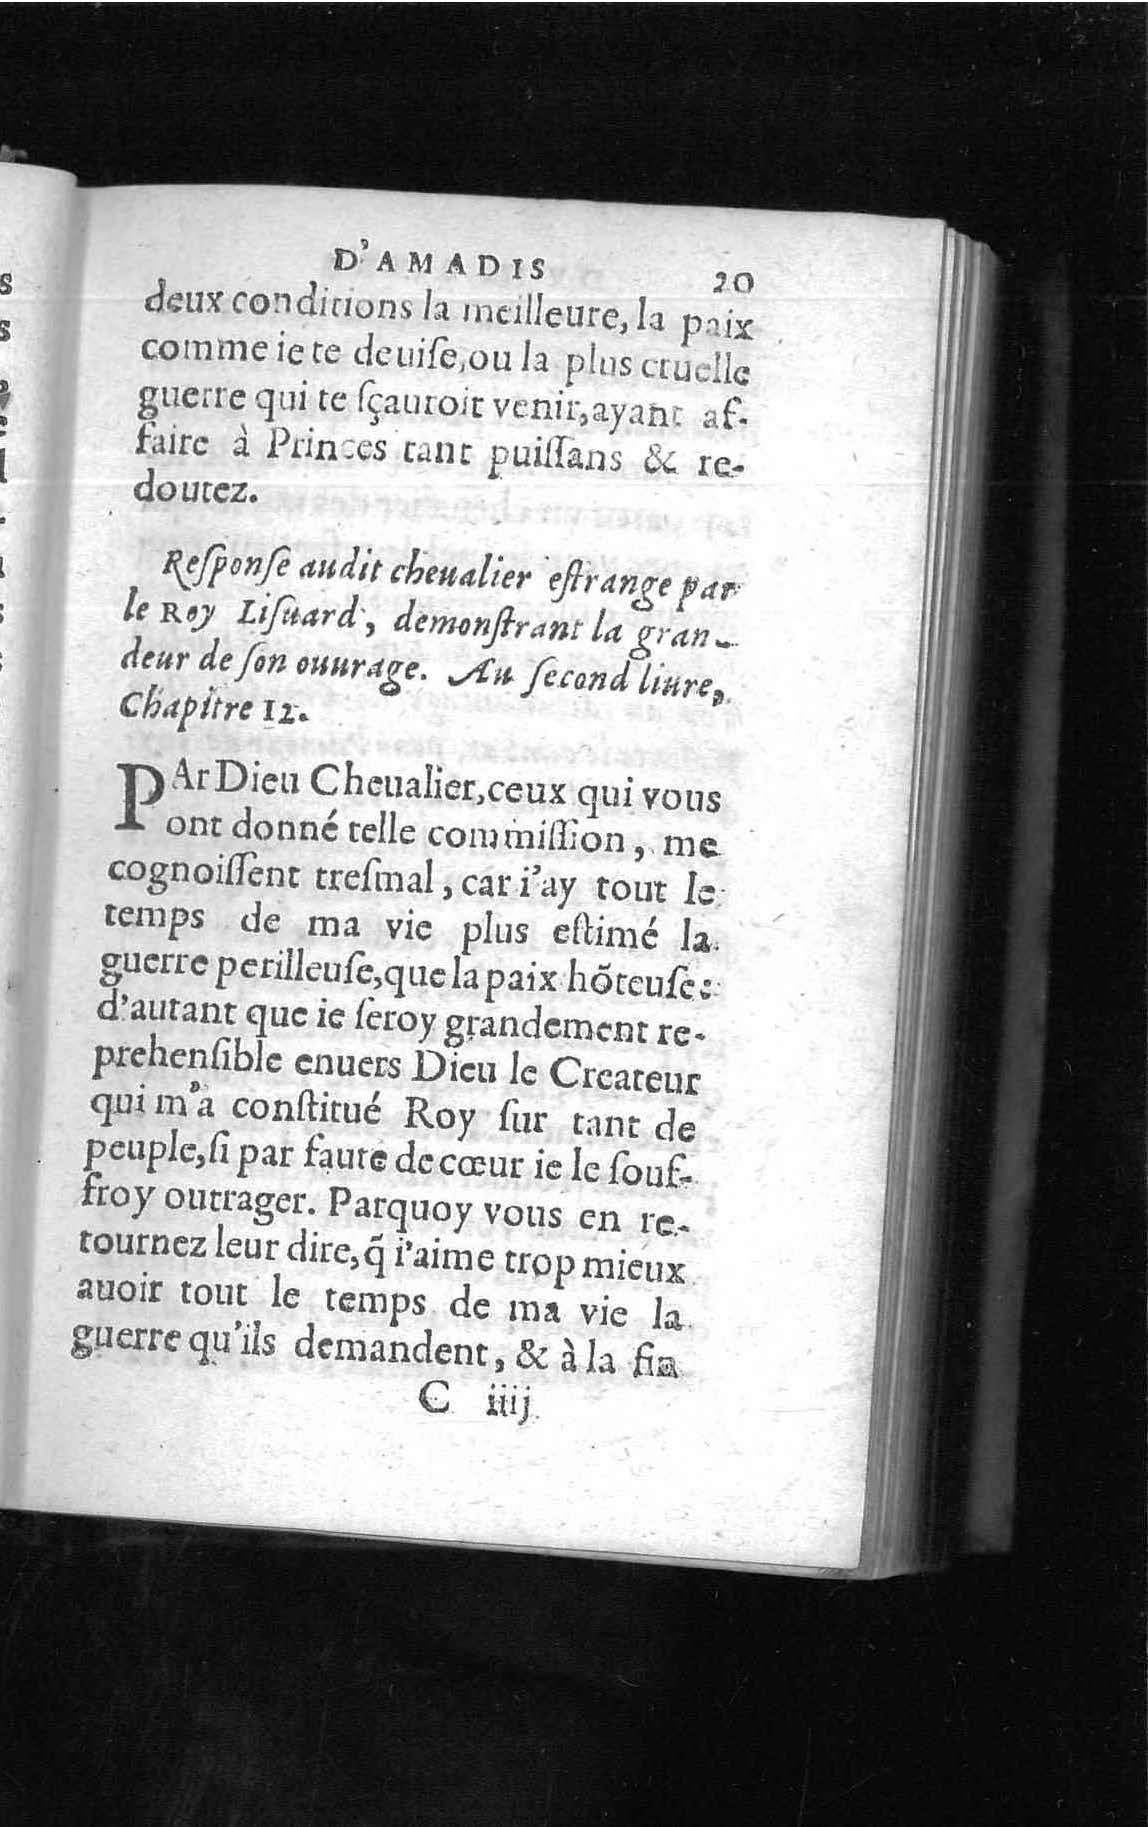 D'AMADIS 20
deux conditions la meilleure, la paix
comme ie te deuiſe, ou la plus cruelle
guerre qui te ſçauroit venir, ayant af-
faire à Princes tant puiſſans & re-
doutez.
Reſponſe audit cheualier eſtrange par
le Roy Liſuard, demonſtrant la gran-
deur de ſon ouurage. Au ſecond liure,
Chapitre 12.
PAr Dieu Cheualier, ceux qui vous
ont donné telle commiſſion, me
cognoiſſent treſmal, car i'ay tout le
temps de ma vie plus eſtimé la
guerre perilleuſe, que la paix hõteuſe:
d'autant que ie ſeroy grandement re-
prehenſible enuers Dieu le Createur
qui m'a conſtitué Roy ſur tant de
peuple, ſi par faute de cœur ie le ſouf-
froy outrager. Parquoy vous en re-
tournez leur dire, q̃ i'aime trop mieux
auoir tout le temps de ma vie la
guerre qu'ils demandent, & à la fin
C iiij